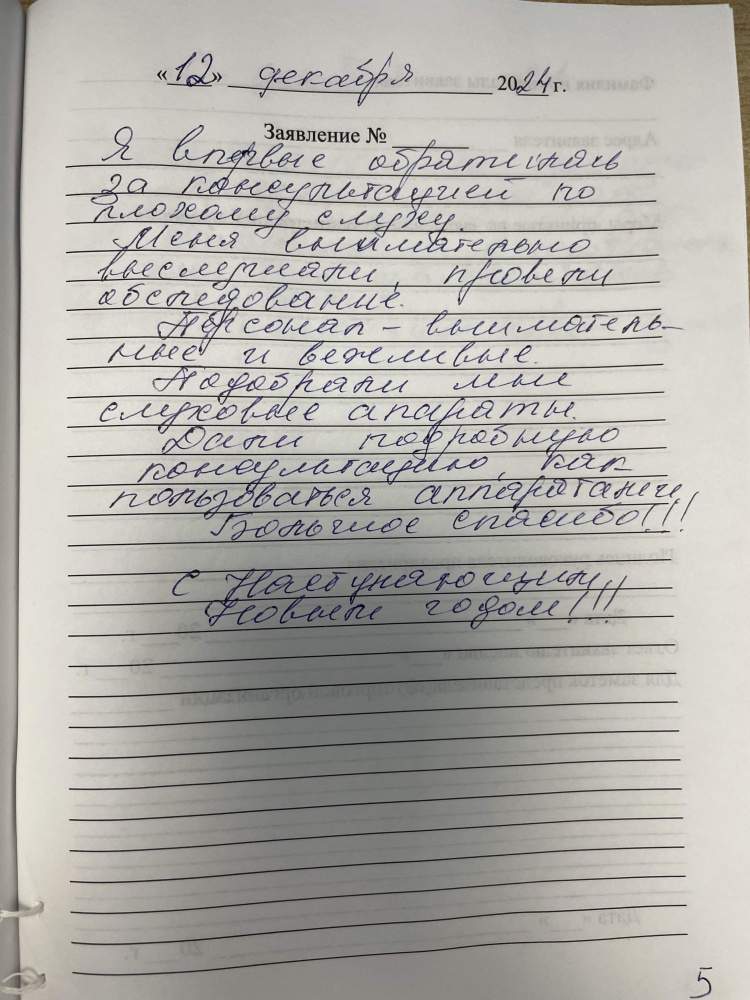 «12» декабря 2024 г.
Заявление №
Я впервые обратилась
за консультацией по
плохому слуху.
Меня внимательно
выслушали, провели
обследование.
Персонал – вниматель-
ные и вежливые.
Подобрали мне
слуховые апараты.
Дали подробную
консультацию, как
пользоваться аппаратами.
Большое спасибо!!!
С Наступающим
Новым годом!!!
5